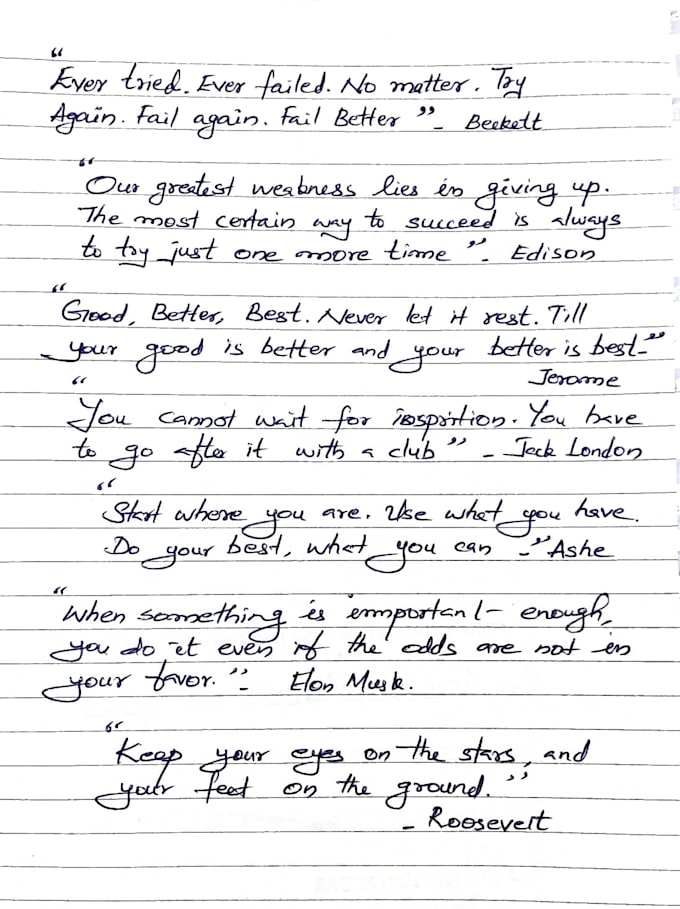 “
Ever tried. Ever failed. No matter. Try
Again. Fail again. Fail Better ” - Beckett
“
Our greatest weakness lies in giving up.
The most certain way to succeed is always
to try just one more time ”. Edison
“
Good, Better, Best. Never let it rest. Till
your good is better and your better is best-”
Jerome
“
You cannot wait for inspiration. You have
to go after it with a club ” - Jack London
“
Start where you are. Use what you have.
Do your best, what you can -” Ashe
“
When something is important enough,
you do it even if the odds are not in
your favor. ” - Elon Musk.
“
Keep your eyes on the stars, and
your feet on the ground. ”
- Roosevelt